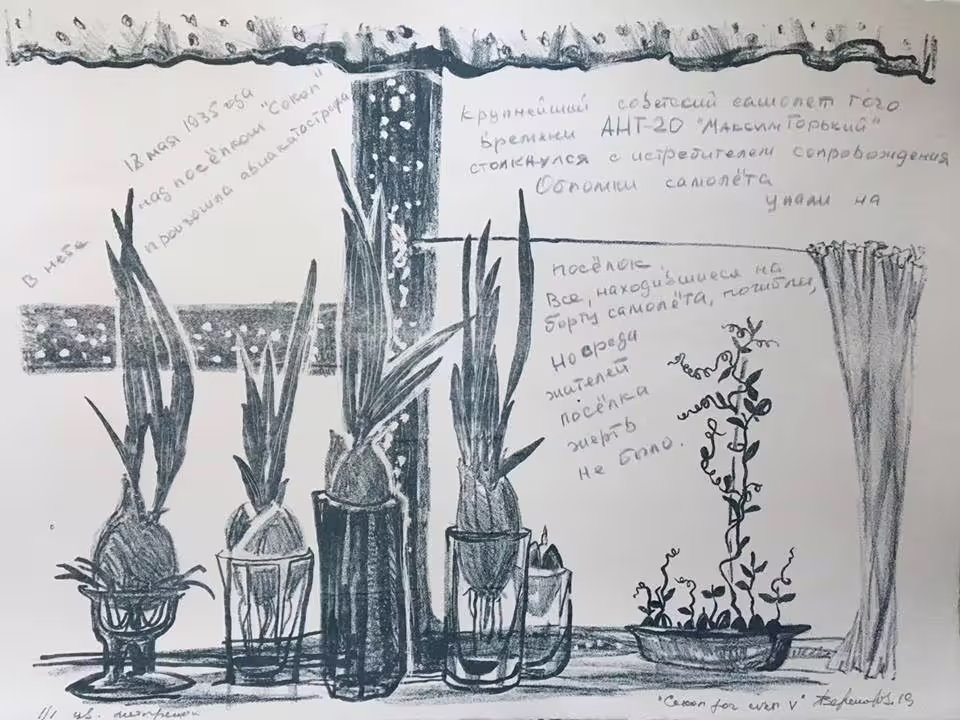 В небе
18 мая 1935 года
над посёлком "Сокол"
произошла авиакатастрофа
Крупнейший советский самолет того
времени АНТ-20 "Максим Горький"
столкнулся с истребителем сопровождения
Обломки самолёта
упали на
посёлок
Все, находившиеся на
борту самолёта, погибли,
но среди
жителей
посёлка
жертв
не было.
1/1 цв. литография
"Сокол for ever V" 19